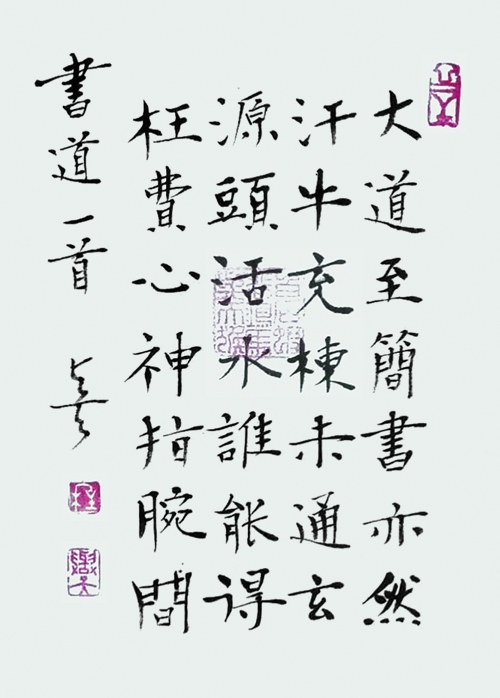 大道至簡書亦然
汗牛充棟未通玄
源頭活水誰能得
枉費心神指腕間
書道一首